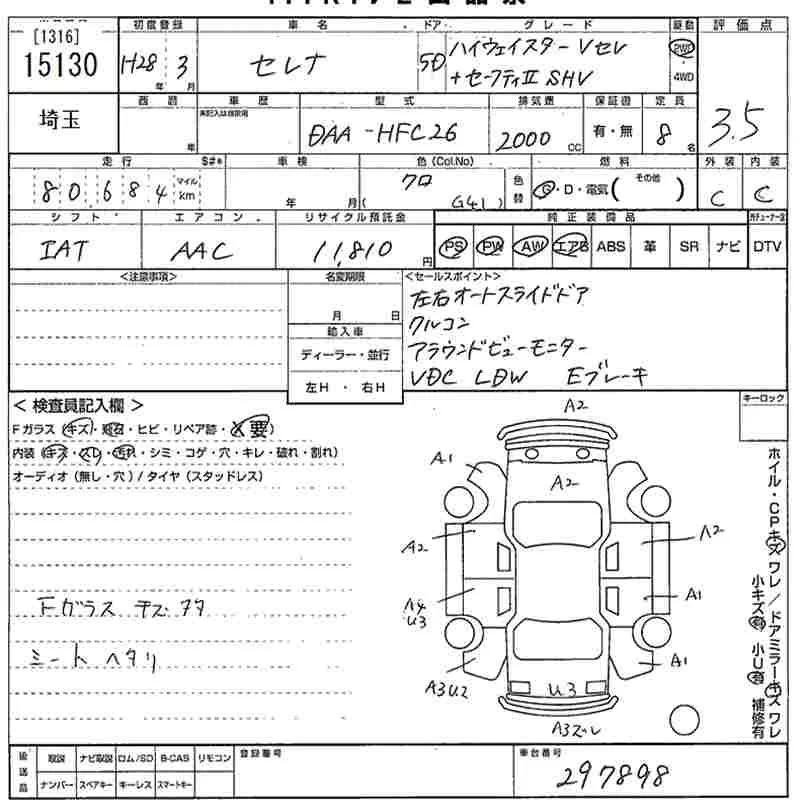 [1316]
15130
埼玉
初度登録
H28年 3月
車名
セレナ
ドア
5D
グレード
ハイウェイスター Vセレ
+セーフティII SHV
駆動
2WD
4WD
評価点
3.5
西暦
年
車歴
型式
DAA-HFC26
排気量
2000 CC
保証書
有・無
定員
8名
走行
80,684
マイル
km
S#*
車検
年 月
色 (Col.No)
クロ
(G41)
色替
燃料
G・D・電気(その他)
外装
C
内装
C
シフト
IAT
エアコン
AAC
リサイクル預託金
11,810円
純正装備品
PS PW AW エアB ABS 革 SR ナビ DTV
<注意事項>
名変期限
月 日
輸入車
ディーラー・並行
左H・右H
<セールスポイント>
左右オートスライドドア
クルコン
アラウンドビューモニター
VDC LDW Eブレーキ
キーロック
<検査員記入欄>
Fガラス(キズ・飛石・ヒビ・リペア跡・X要)
内装(キズ・スレ・汚れ・シミ・コゲ・穴・キレ・破れ・割れ)
オーディオ(無し・穴)/タイヤ(スタッドレス)
Fガラス キズ アタ
シート ヘタリ
A2
A1
A2
A2
A2
A4
U3
A1
A3U2
A1
U3
A3スレ
ホイル・CPキズワレ/ドアミラーキズワレ
小キズ有 小U有 補修有
後送品
取説 ナビ取説 ロム/SD B-CAS リモコン
ナンバー スペアキー キーレス スマートキー
登録番号
車台番号
297898